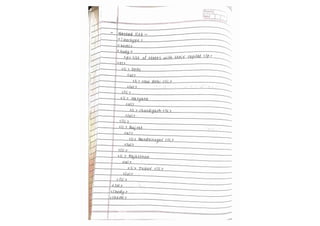 Nested list
<!doctype>
<html>
<body>
<p> list of states with their capital </p>
<ul>
<li> India
<ul>
<li> New Delhi </li>
</ul>
</li>
<li> Haryana
<ul>
<li> Chandigarh </li>
</ul>
</li>
<li> Gujrat
<ul>
<li> Gandhinagar </li>
</ul>
</li>
<li> Rajasthan
<ul>
<li> Jaipur </li>
</ul>
</li>
</ul>
</body>
</html>